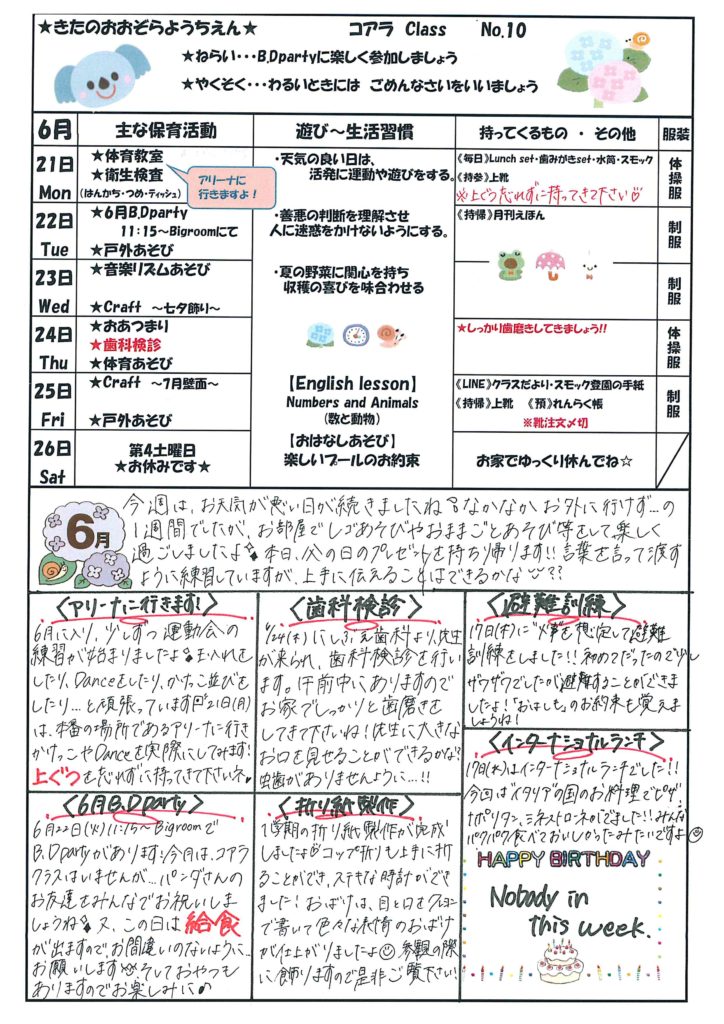 ★きたのおおぞらようちえん★ コアラ Class No.10
★ねらい・・・B.Dpartyに楽しく参加しましょう
★やくそく・・・わるいときには ごめんなさいをいいましょう
6月 主な保育活動 遊び～生活習慣 持ってくるもの ・ その他 服装
21日 Mon
★体育教室
★衛生検査
(はんかち・つめ・ティッシュ)
アリーナに
行きますよ！
・天気の良い日は、
活発に運動や遊びをする。
《毎日》Lunch set・歯みがきset・水筒・スモック
《持参》上靴
※上ぐつ忘れずに持ってきて下さい
体操服
22日 Tue
★6月B.Dparty
11:15～Bigroomにて
★戸外あそび
・善悪の判断を理解させ
人に迷惑をかけないようにする。
《持帰》月刊えほん
制服
23日 Wed
★音楽リズムあそび
★Craft ～七夕飾り～
・夏の野菜に関心を持ち
収穫の喜びを味合わせる
制服
24日 Thu
★おあつまり
★歯科検診
★体育あそび
★しっかり歯磨きしてきましょう!!
体操服
25日 Fri
★Craft ～7月壁面～
★戸外あそび
【English lesson】
Numbers and Animals
(数と動物)
《LINE》クラスだより・スモック登園の手紙
《持帰》上靴 《預》れんらく帳
※靴注文〆切
制服
26日 Sat
第4土曜日
★お休みです★
【おはなしあそび】
楽しいプールのお約束
お家でゆっくり休んでね☆
6月
今週は、お天気が悪い日が続きましたね。なかなかお外に行けず…の
1週間でしたが、お部屋でレゴあそびやおままごとあそび等をして楽しく
過ごしましたよ 本日、父の日のプレゼントを持ち帰ります!!言葉を言って渡す
ように練習していますが、上手に伝えることはできるかな??
〈アリーナに行きます!〉
6月に入り、少しずつ運動会への
練習が始まりましたよ 玉入れをし
たり、Danceをしたり、かけっこ並びをし
たり…と頑張っています 21日(月)
は、本番の場所であるアリーナに行き
かけっこやDanceを実際にしてみます!
上ぐつを忘れずに持ってきて下さいネ
〈歯科検診〉
6/24(木)にしぶえ歯科より、先生
が来られ、歯科検診を行い
ます。午前中にありますので
お家でしっかりと歯磨きを
してきて下さいね!先生に大きな
お口を見せることができるかな?
虫歯がありませんように…!!
〈避難訓練〉
17日(木)に"火事"を想定して避難
訓練をしました!!初めてだったので少し
ザワザワでしたが避難することができま
したよ!「おはしも」のお約束も覚えま
しょうね!
〈インターナショナルランチ〉
17日(木)はインターナショナルランチでした!!
今回はイタリアの国のお料理でピザ・
ナポリタン、ミネストローネetcでました!!みんな
パクパク食べておいしかったみたいですよ
〈6月B.Dparty〉
6月22日(火)11:15～Bigroomで
B.Dpartyがあります 今月は、コアラ
クラスはいませんが…パンダさんの
お友達をみんなでお祝いしま
しょうね 又、この日は給食
が出ますので、お間違いのないように…
お願いします そしておやつも
ありますのでお楽しみに♪
〈折り紙製作〉
1学期の折り紙製作が完成
しましたよ コップ折りも上手に折
ることができ、ステキな時計ができ
ました!おばけは、目と口をクレヨン
で書いて色々な表情のおばけ
が仕上がりましたよ 参観の際
に飾りますので是非ご覧下さい!
HAPPY BIRTHDAY
Nobody in
this week.